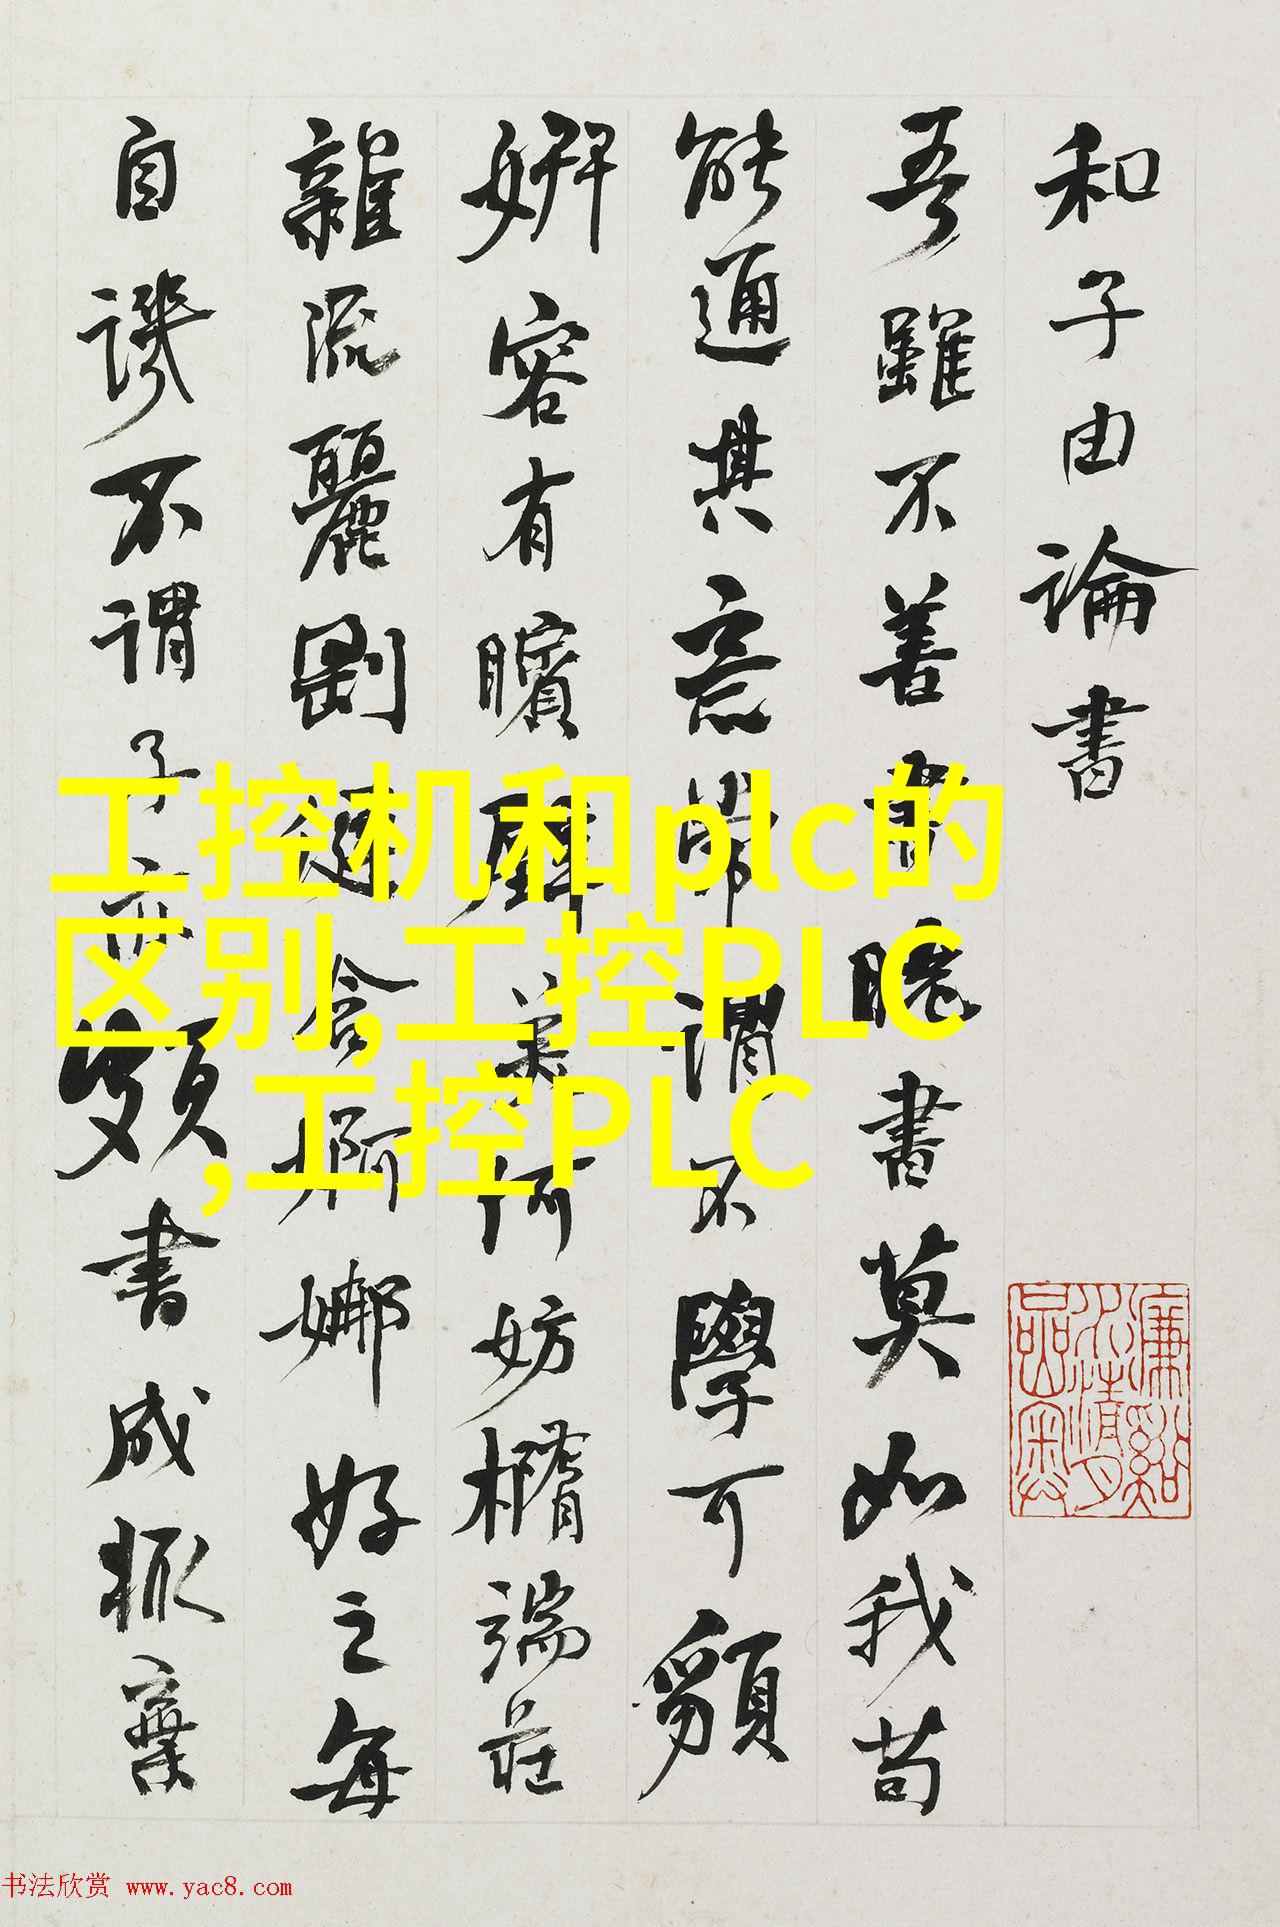 和子由論書
吾雖不善書曉書莫如我苟
能通其意常謂不學可䫉
妍容有矉璧美何妨橢端莊
雜流麗剛健含婀娜好之每
自譏不謂子亦頗書成輒棄
工控机和plc的
区别,工控PLC
,工控PLC
书法欣赏 www.yac8.com